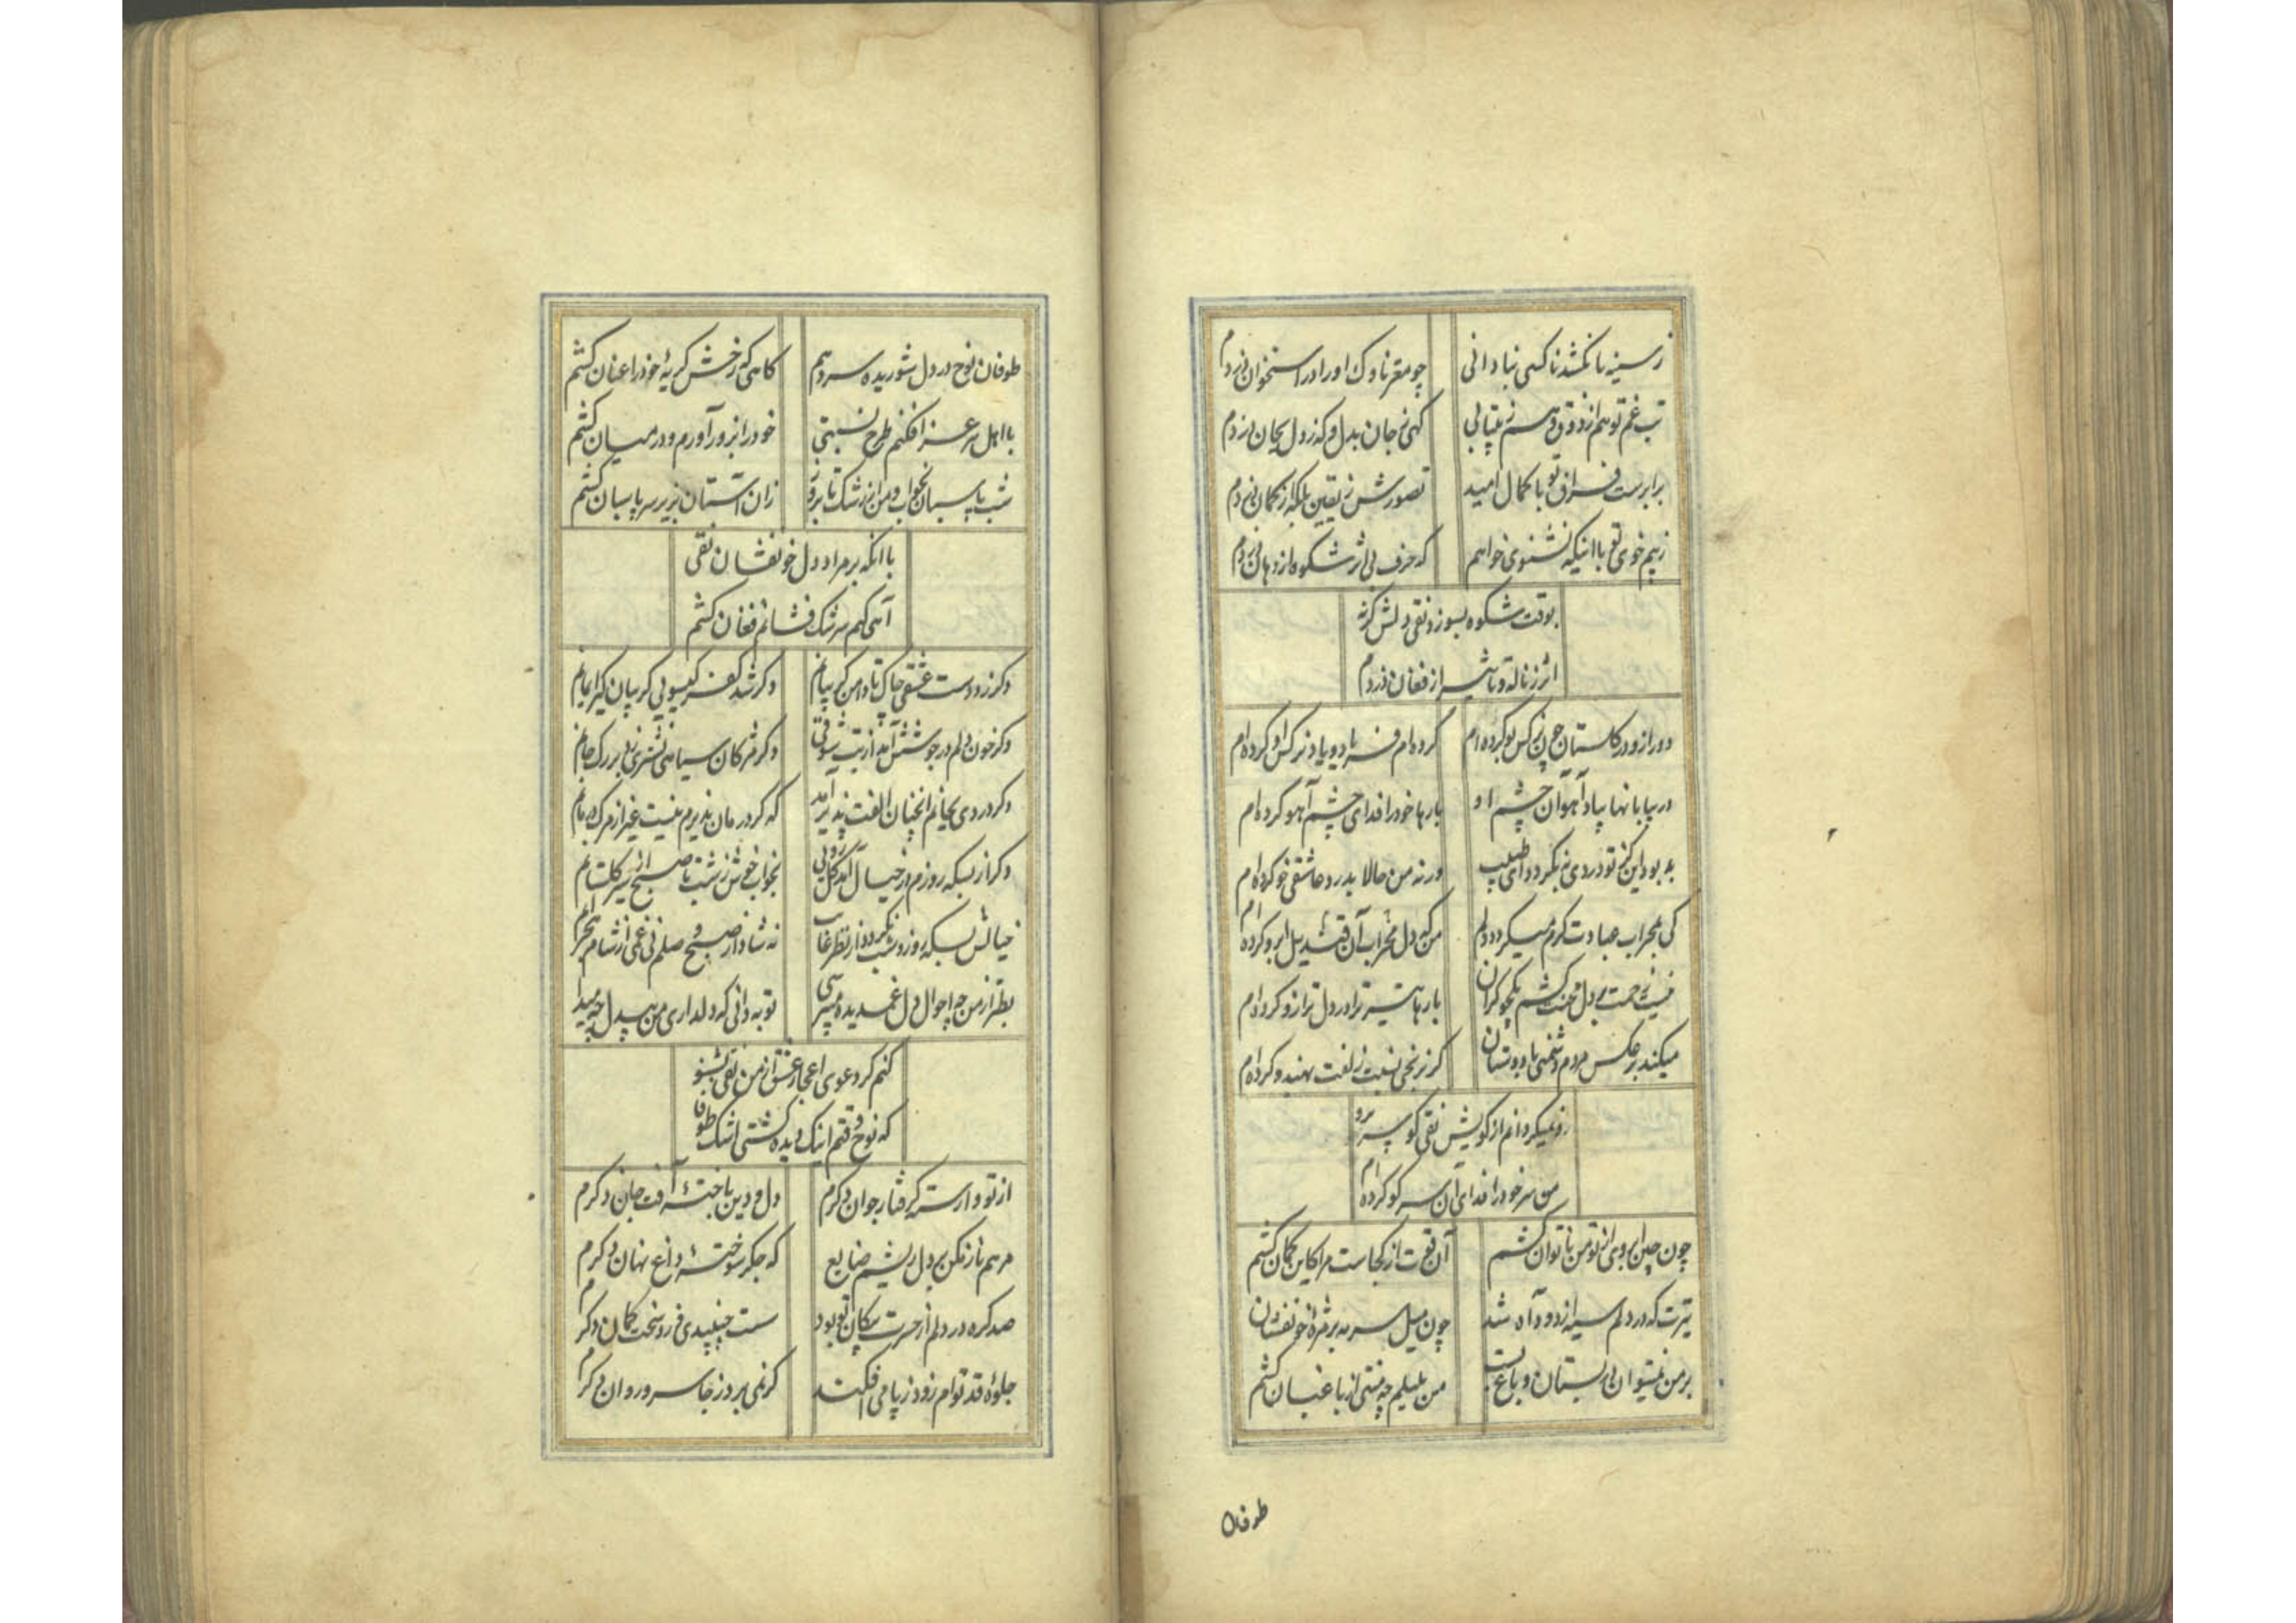 ز سینه تا نکشد ناکسی بنادانی چو مغز ناوک او را در استخوان دزدم
تب غم تو هم از ذوق و هم ز بیتابی گهی ز جان بدل و گه ز دل بجان دزدم
برابرست فراق تو با کمال امید تصورش ز یقین بلکه از کمان دزدم
ز بیم خوی تو با اینکه نشنوی خواهم که حرف بی اثر شکوه از دهان دزدم
بوقت شکوه بسوزد نقی دلش کرنه
اثر ز ناله و تاثیر از فغان دزدم
دور ازو در کلستان چون نرکس بو کرده ام کرده ام فریاد و یاد نرکس او کرده ام
در بیابانها بیاد آهوان چشم او بارها خود را فدای چشم آهو کرده ام
به بود این کز تو دردی به نکردد ای طبیب ورنه من حالا بدرد عاشقی خو کرده ام
کی بمحراب عبادت کرم میکردد دلم من که دل محراب آن قندیل ابرو کرده ام
نیست بی زحمت دل محنت کشم بارها تیر ترا در دل ترازو کرده ام
میکند بر عکس مردم دشمنی با دوستان کرنه بختی نسبت زلفت بهندو کرده ام
رو نمیکردانم از کویش نقی کو سر برو
من سر خود را فدای آن سر کو کرده ام
چون چین ابروی از تو من ناتوان کشم آن قوت از کجاست مرا کاین کمان کشم
تیرت که در دلم سیه از دود آه شد چون میل سرمه بر مژه خونفشان کشم
بر من نمیتوان در بستان و باغ بست من بلبلم چه منتی از باغبان کشم
طوفان
طوفان نوح در دل شوریده سر دهم کاهی که رخش کریهٔ خود را عنان کشم
با اهل سر عزا فکنم طرح نسبتی خود را بزور آورم و در میان کشم
شب پاسبان بخواب و من از رشک تا بروز زان آستان بزیر سر پاسبان کشم
با آنکه بر مراد دل خونفشان نقی
آهی کهم سرشک فشانم فغان کشم
دکر زد دست عشقی چاک تا دامن کریبانم دکر شد کفر کیسویی کریبان کیر ایمانم
دکر خون دلم در جوشش آمد از تب شوقی دکر مژکان سیاهی نشتری زد بر رک جانم
دکر دردی بجانم آنچنان الفت پذیر آمد که کر درمان پذیرم نیست غیر از مرک درمانم
دکر از بسکه روزم در خیال آمد کل رویی بخواب خوش ز شب تا صبح از سیر کلستانم
خیالش بسکه روز و شب نکردد از نظر غایب نه شاد از صبح وصلم نی غمی از شام هجرانم
بطنز از من چه احوال دل غمدیده میپرسی تو به دانی که دلداری من بیدل چه میدانم
کنم کر دعوی اعجاز عشق از من نقی بشنو
که نوح وقتم اینک دیده کشتی اشک طوفانم
از تو وارسته کرفتار جوان دکرم دل و دین باختهٔ آفت جان دکرم
مرهم ناز مکن بر دل ریشم ضایع که جکر سوختهٔ داغ نهان دکرم
صد کره در دلم از حسرت پیکان تو بود سست چسپیدی و زد سخت کمان دکرم
جلوهٔ قد توام زود ز پا می افکند کر نمی برد ز جا سرو روان دکرم